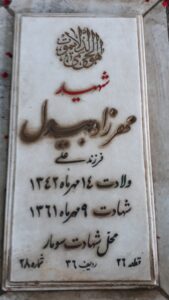 شهید
مهرزاد بیدل
فرزند علی
ولادت ۱۴ مهر ماه ۱۳۴۲
شهادت ۹ مهر ماه ۱۳۶۱
محل شهادت سومار
قطعه ۲۶ ردیف ۳۶ شماره ۲۸